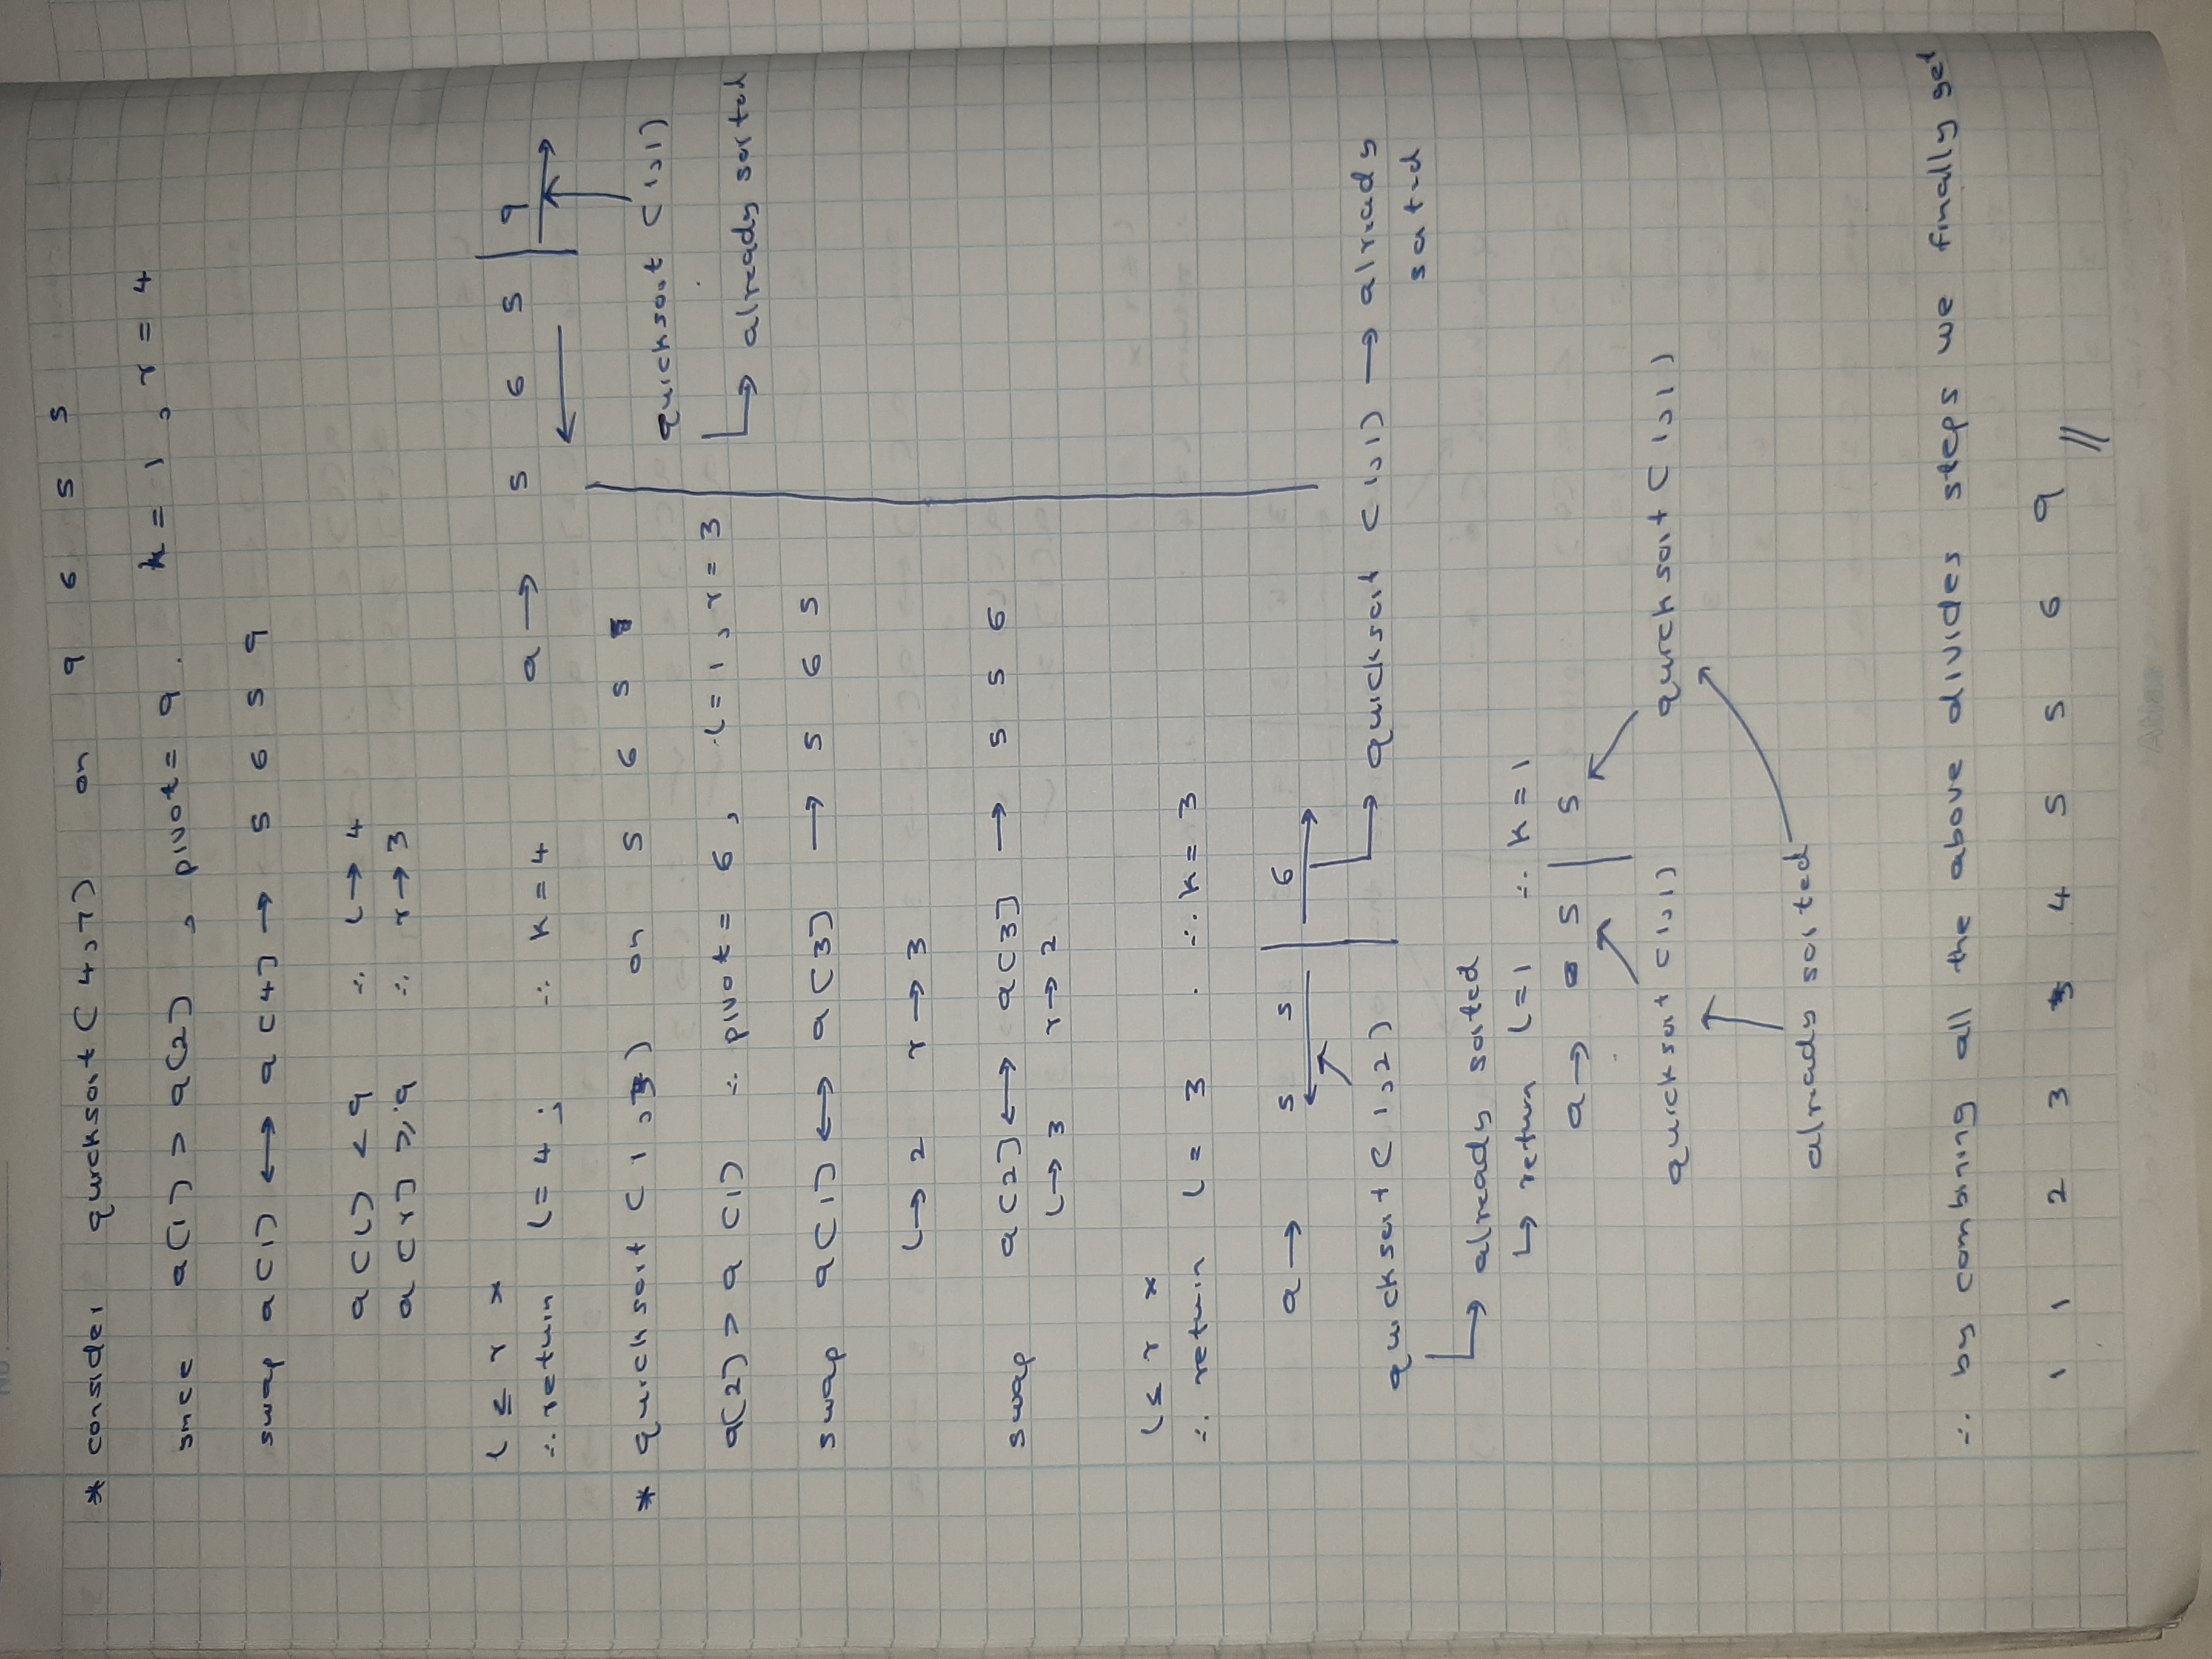 No:
* consider quicksort (4,7) on 9 6 5 5
since a[1] > a[2] , pivot = 9 . k = 1 , r = 4
swap a[1] ↔ a[4] → 5 6 5 9
a[l] < 9 ∴ l → 4
a[r] ≥ 9 ∴ r → 3
l ≤ r ×
∴ return l = 4 ; ∴ k = 4
a → 5 6 5 | 9
quicksort (1,1)
↳ already sorted
* quicksort (1,3) on 5 6 5
a[2] > a[1] ∴ pivot = 6 , l = 1 , r = 3
swap a[1] ↔ a[3] → 5 6 5
l → 2 r → 3
swap a[2] ↔ a[3] → 5 5 6
l → 3 r → 2
l ≤ r ×
∴ return l = 3 . ∴ k = 3
a → 5 5 | 6
quicksort (1,2)
↳ quicksort (1,1) → already
sorted
↳ already sorted
↳ return l = 1 ∴ k = 1
a → 5 | 5
quicksort (1,1) quicksort (1,1)
already sorted
∴ by combining all the above divides steps we finally get
1 1 2 3 3 4 5 5 6 9 //